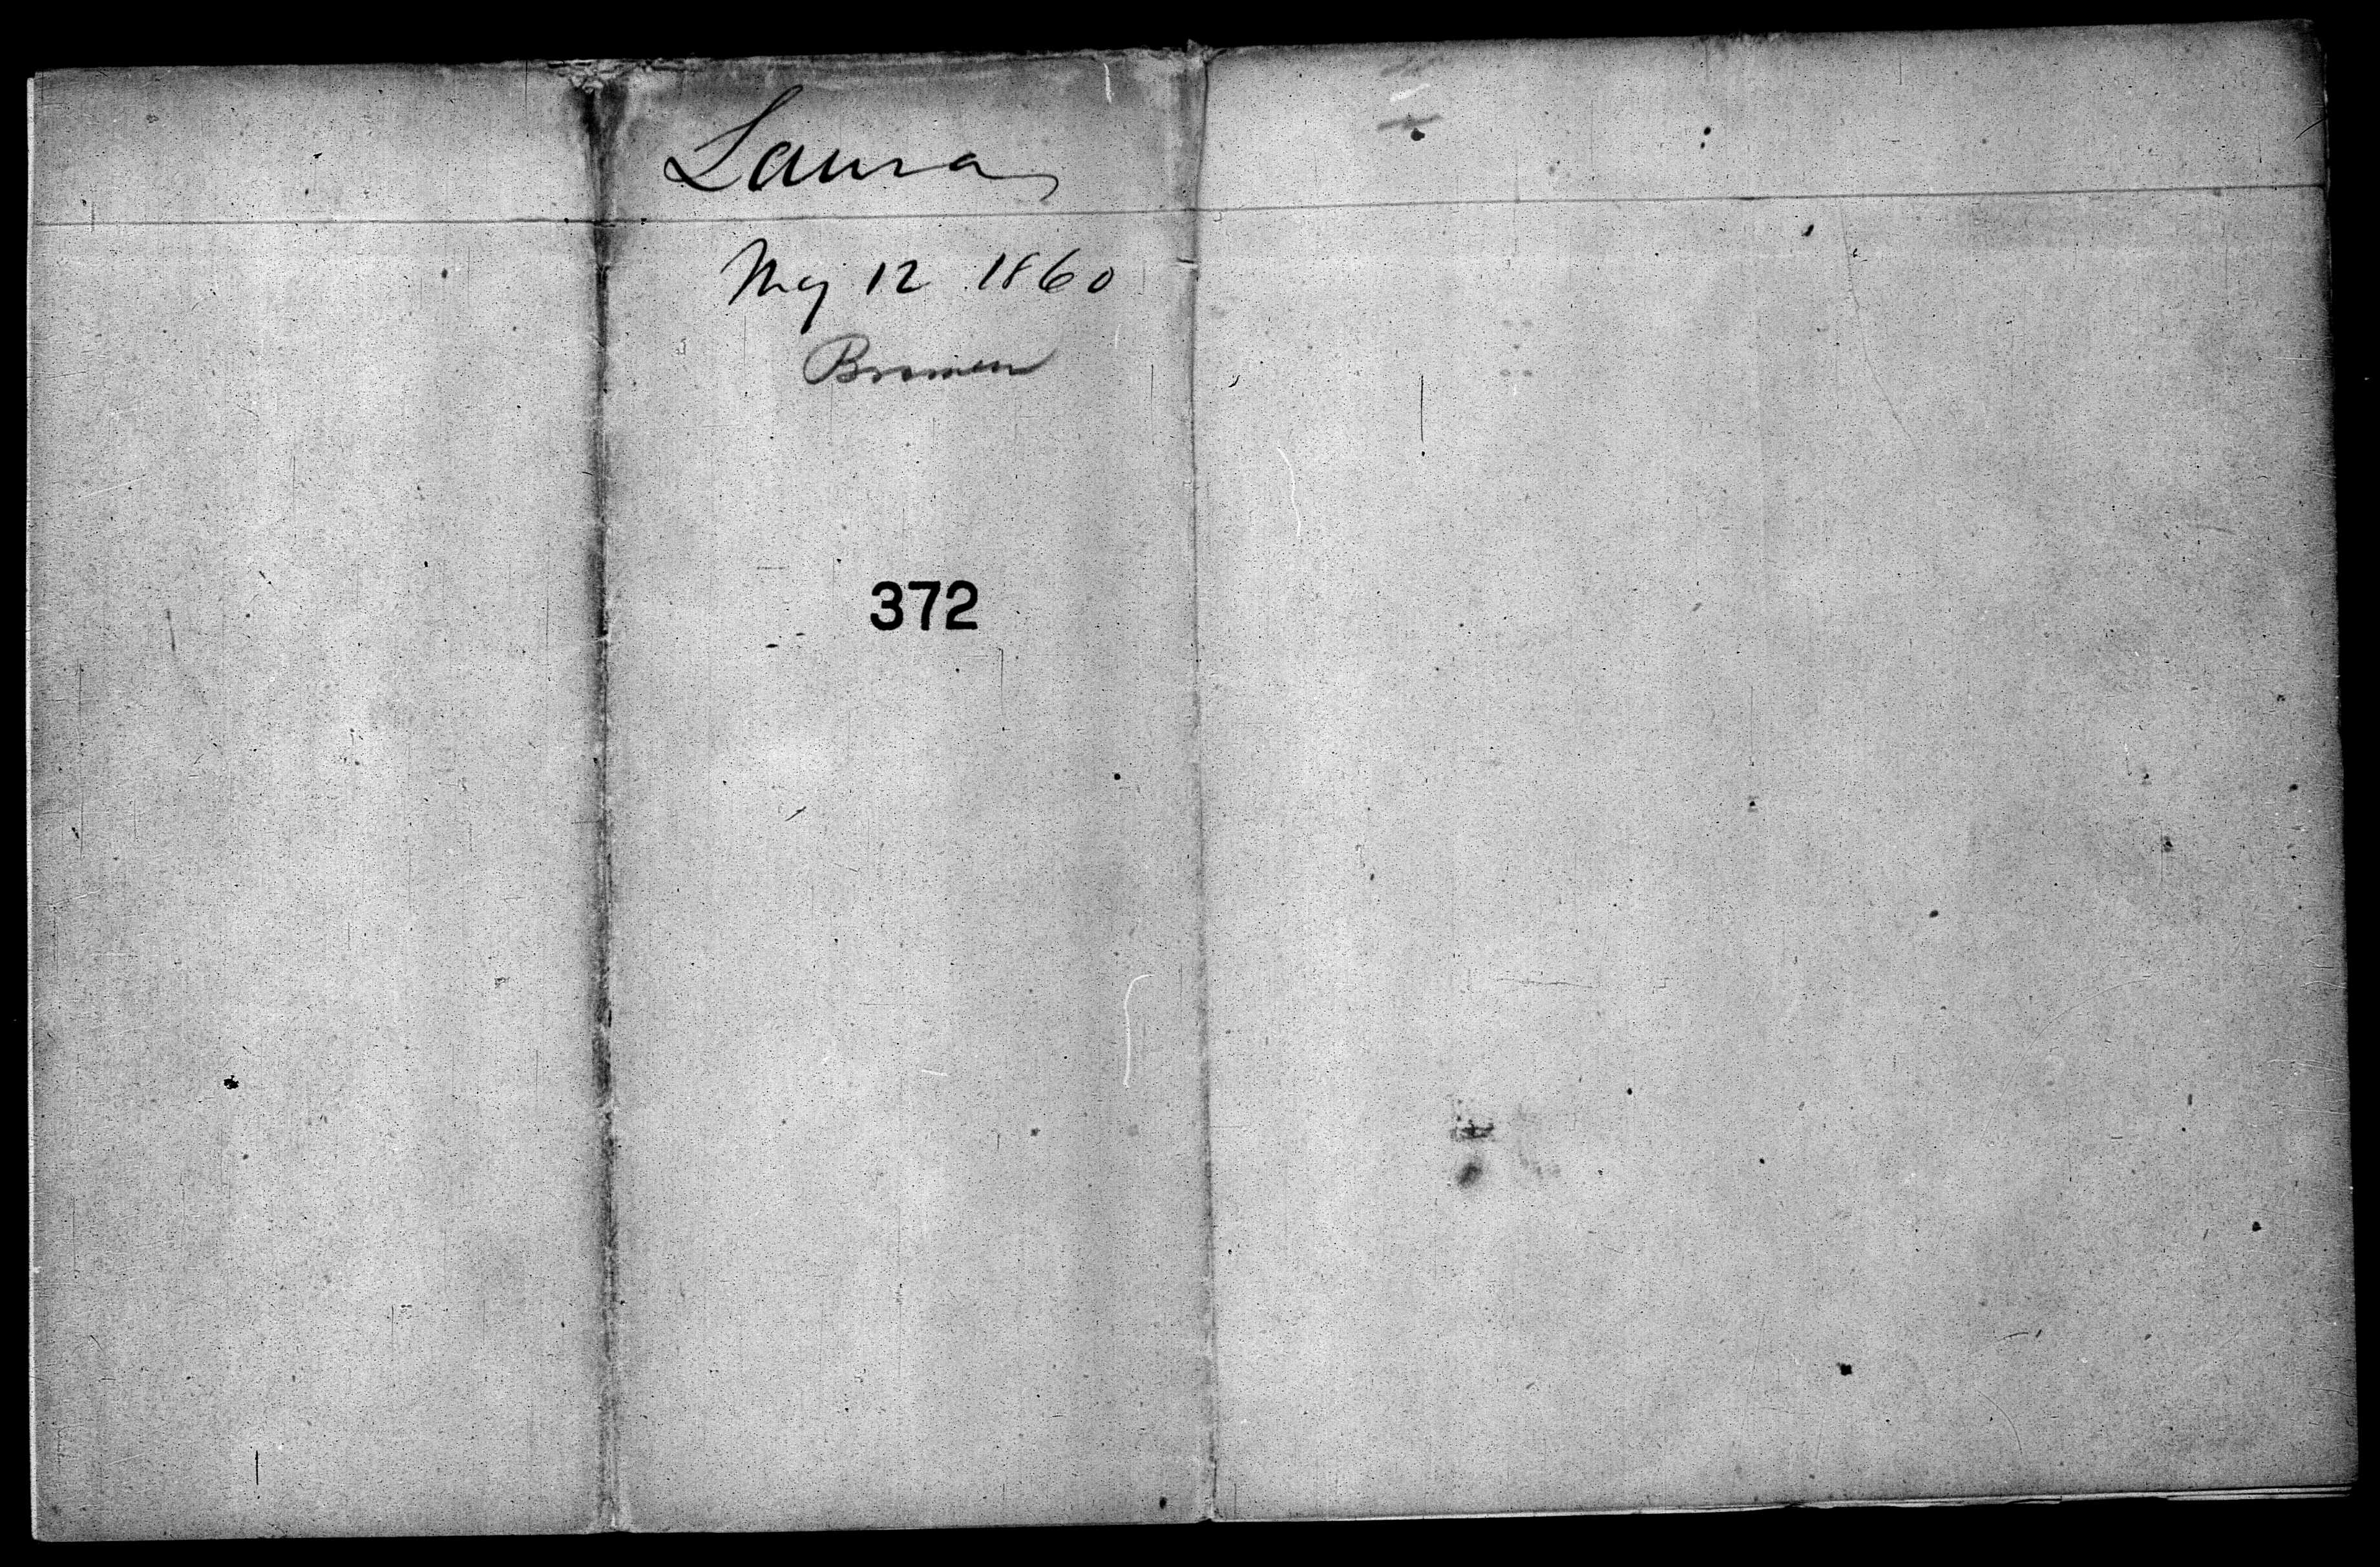 Laura
My 12 1860
Bremen
372